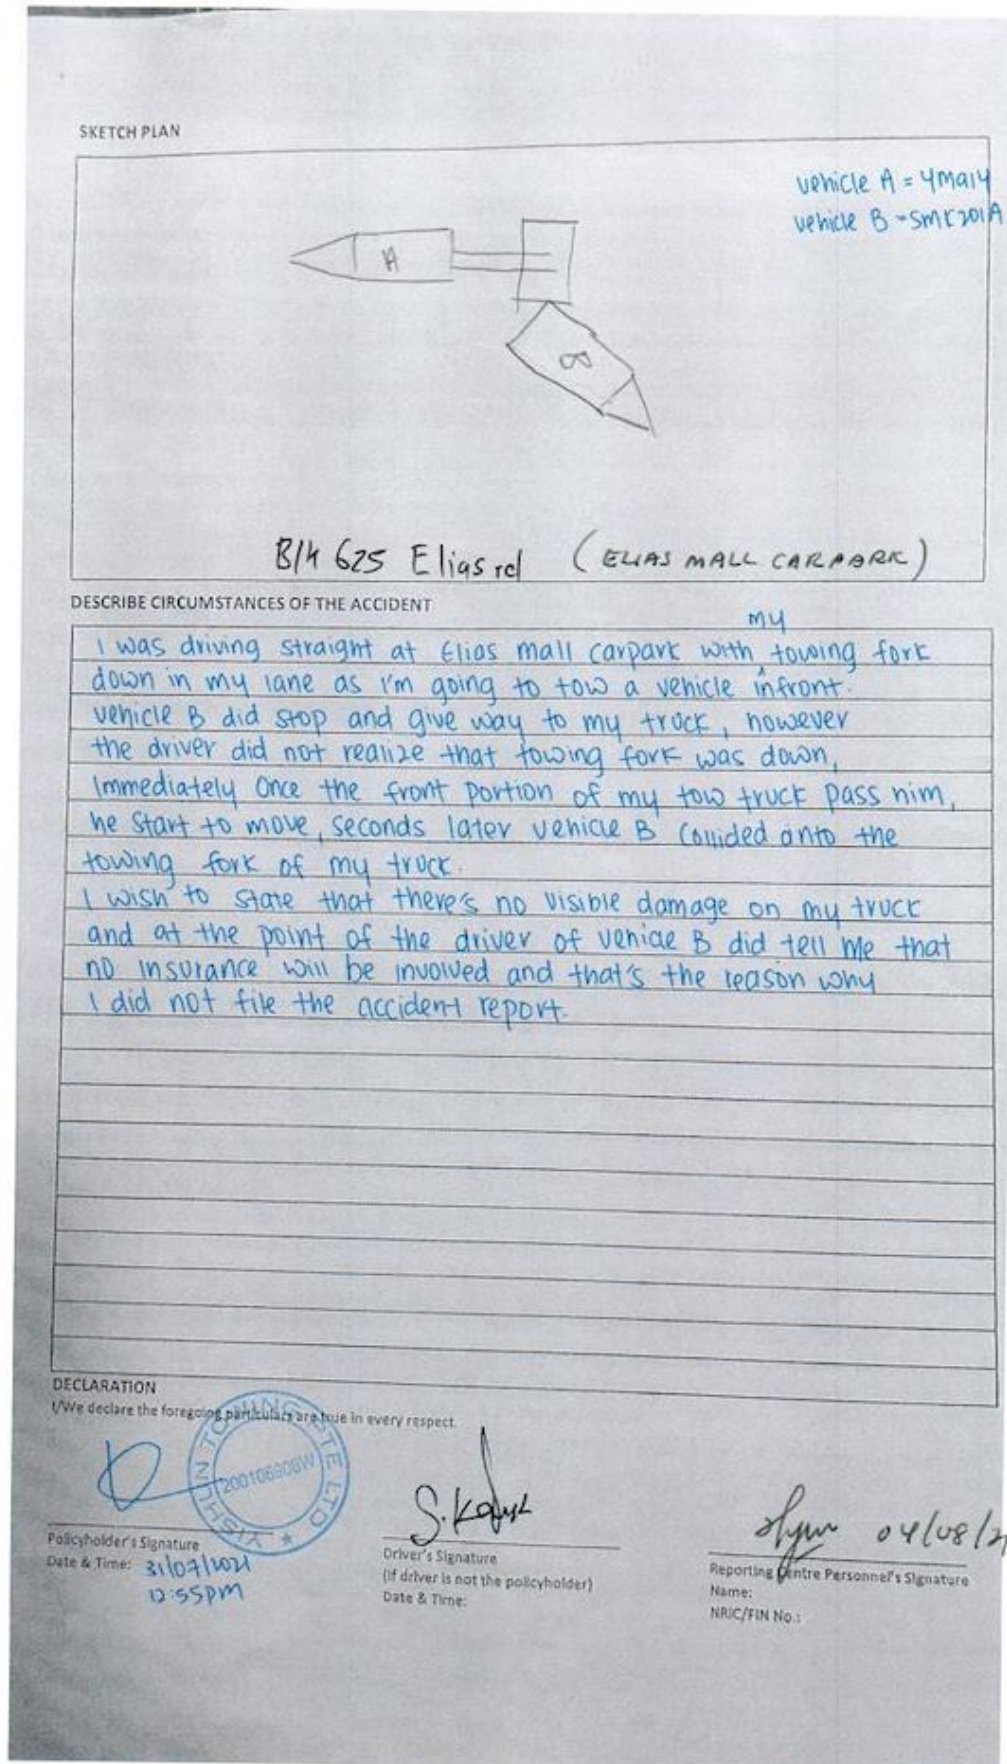 SKETCH PLAN
vehicle A = YMQ14
vehicle B - SMK201A
A
B
Blk 625 Elias rd (ELIAS MALL CARPARK)
DESCRIBE CIRCUMSTANCES OF THE ACCIDENT
my
I was driving straight at Elias mall carpark with towing fork
down in my lane as I'm going to tow a vehicle infront.
vehicle B did stop and give way to my truck, however
the driver did not realize that towing fork was down,
Immediately Once the front portion of my tow truck pass him,
he start to move, seconds later vehicle B Collided onto the
towing fork of my truck.
I wish to state that there's no visible damage on my truck
and at the point of the driver of vehicle B did tell me that
no insurance will be involved and that's the reason why
I did not file the accident report.
DECLARATION
I/We declare the foregoing particulars are true in every respect.
YISHUN TOWING PTE LTD
200106908W
S.
04/08/21
Policyholder's Signature
Date & Time: 31/07/2021
12:55pm
Driver's Signature
(If driver is not the policyholder)
Date & Time:
Reporting Centre Personnel's Signature
Name:
NRIC/FIN No.: